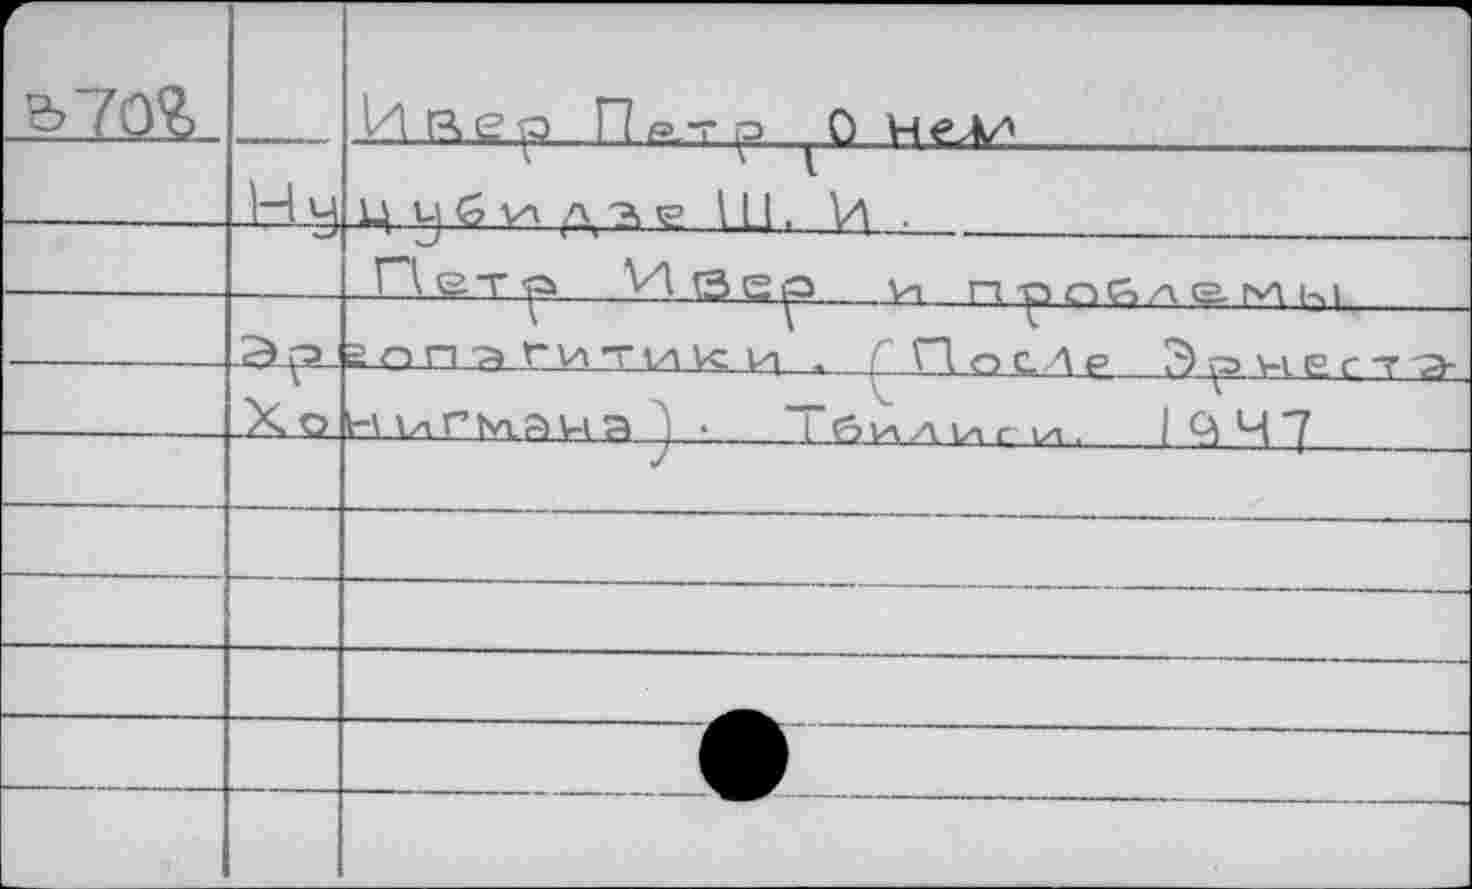 в708 Ивер Петр, О нем
Нуцубидзе Ш. И.
Петр Ивер и проблемы
Эреопагитики. (После Эрнеста
Хонигмана). Тбилиси. 1947